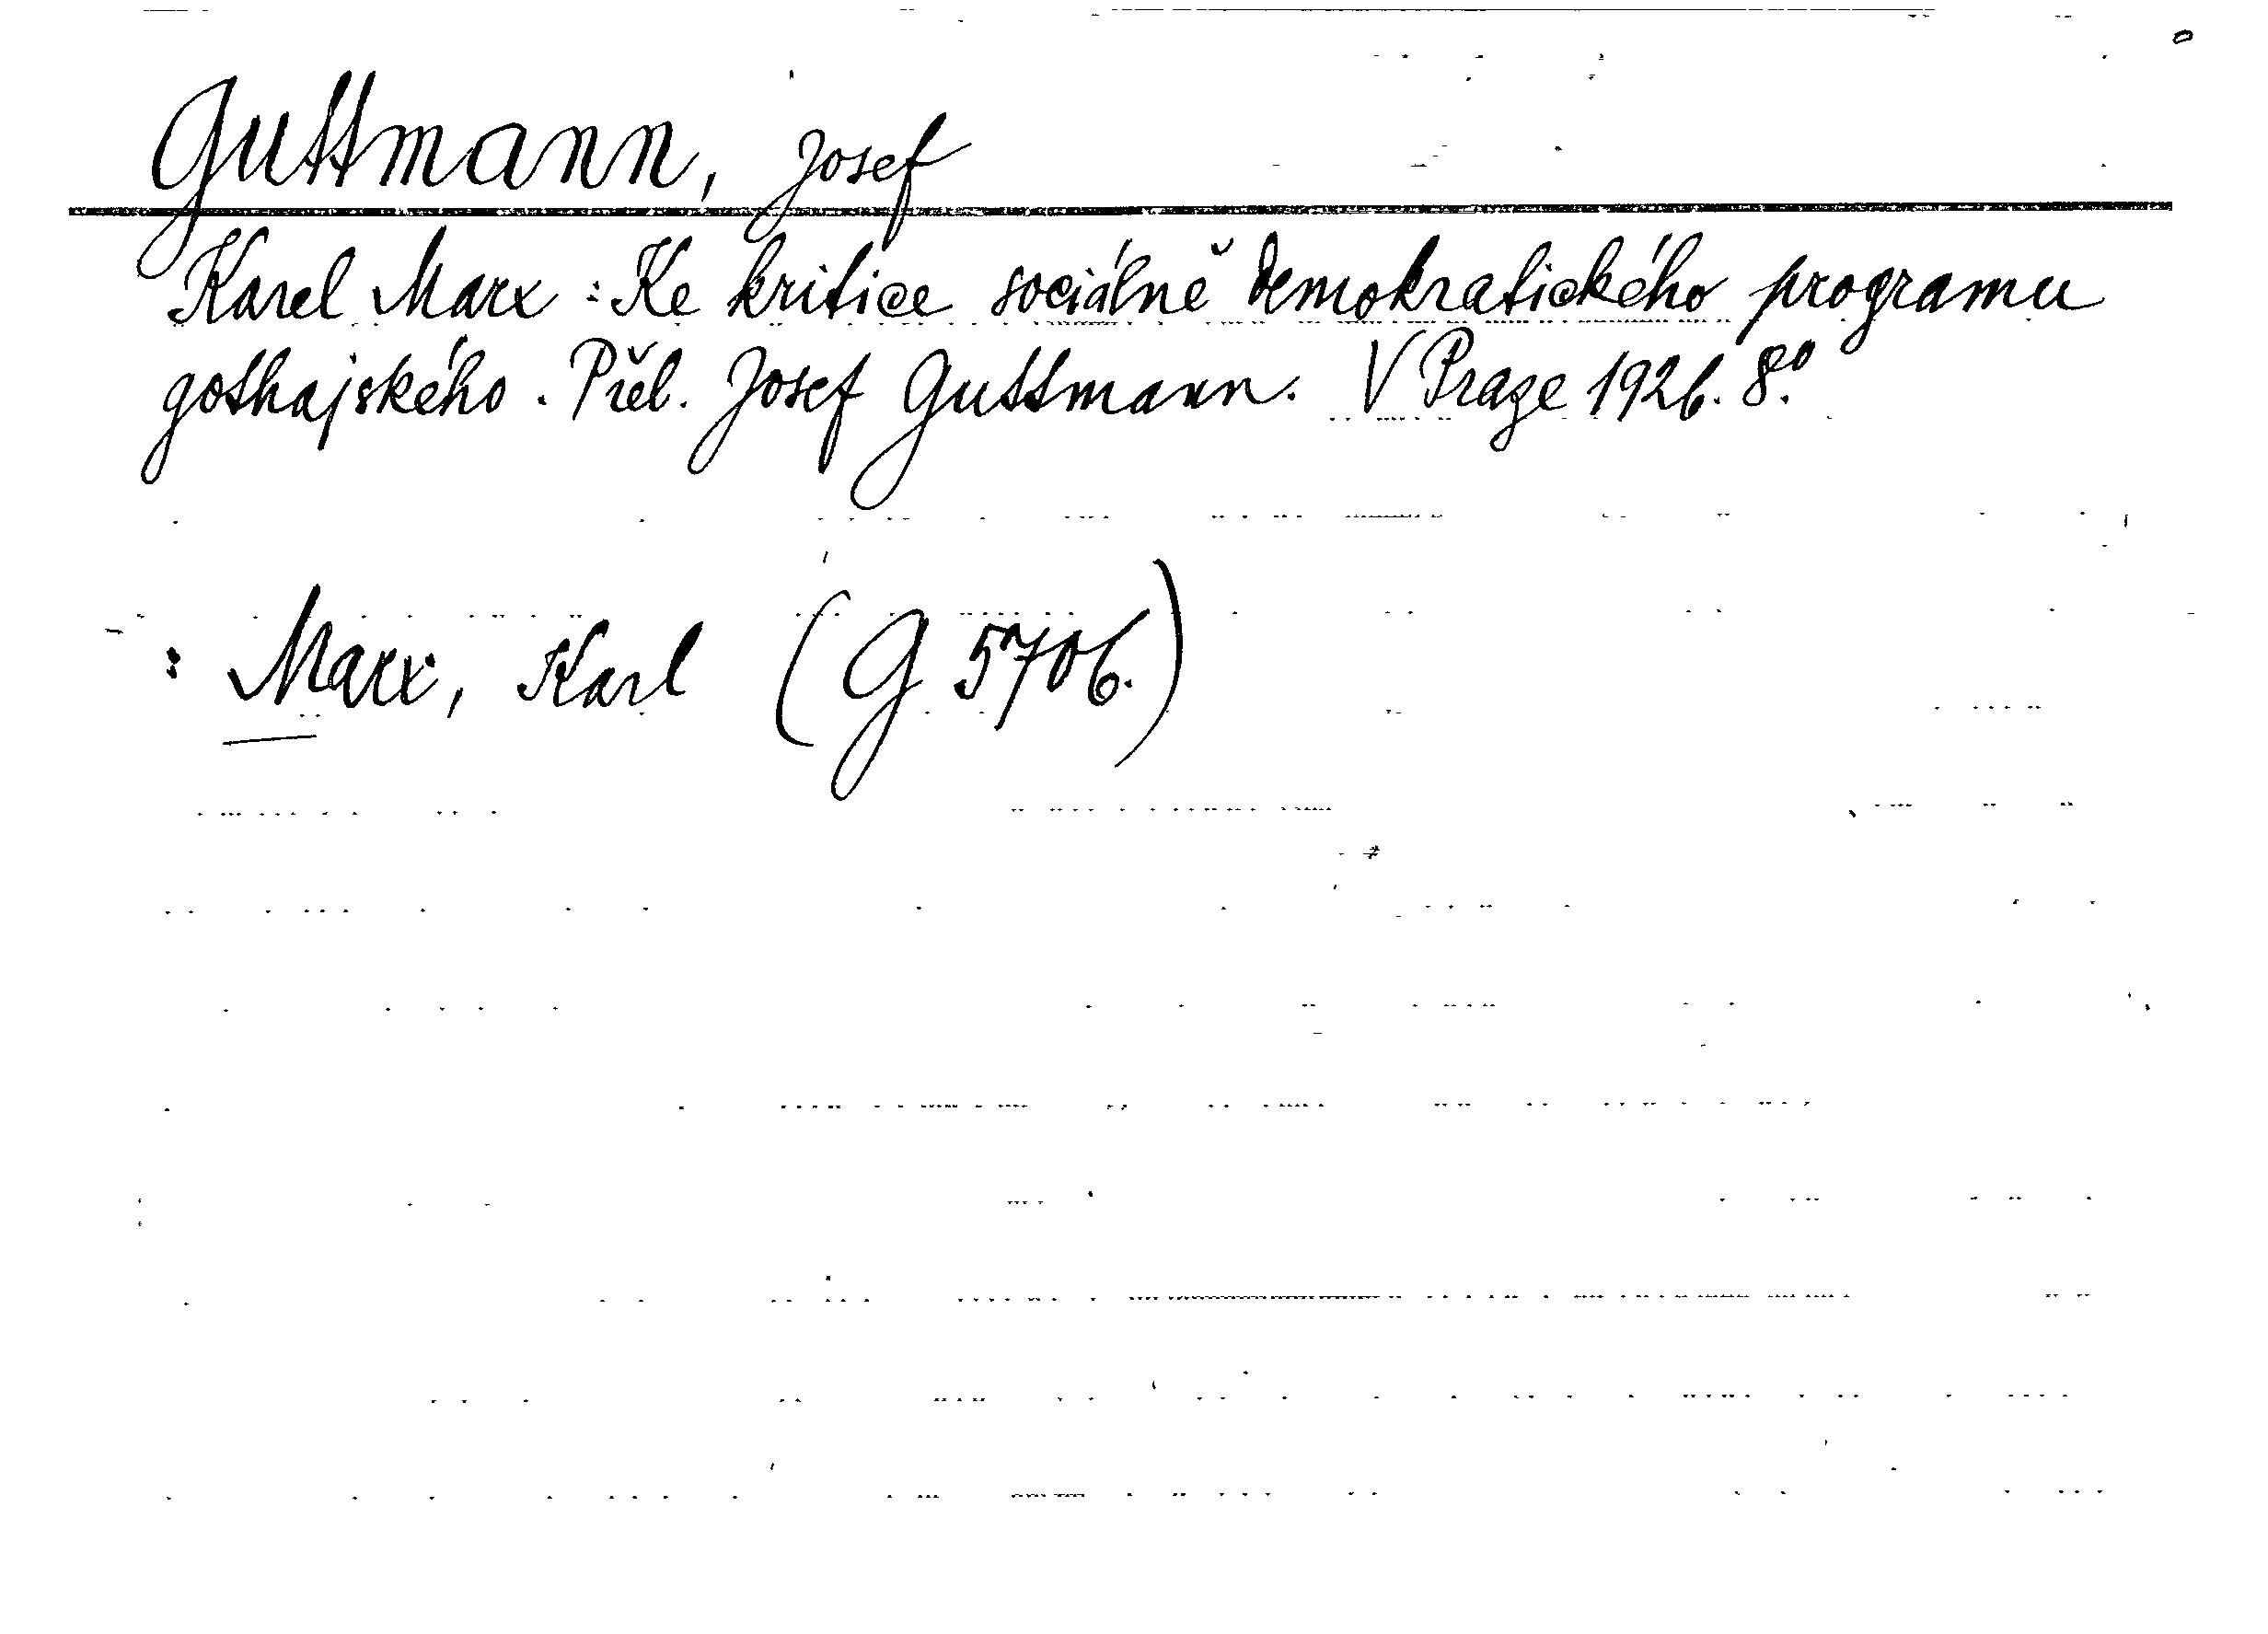 Guttmann, Josef
Karel Marx : Ke kritice sociálně demokratického programu
gothajského. Přel. Josef Guttmann. V Praze 1926. 8°.
: Marx, Karl (G 5706.)